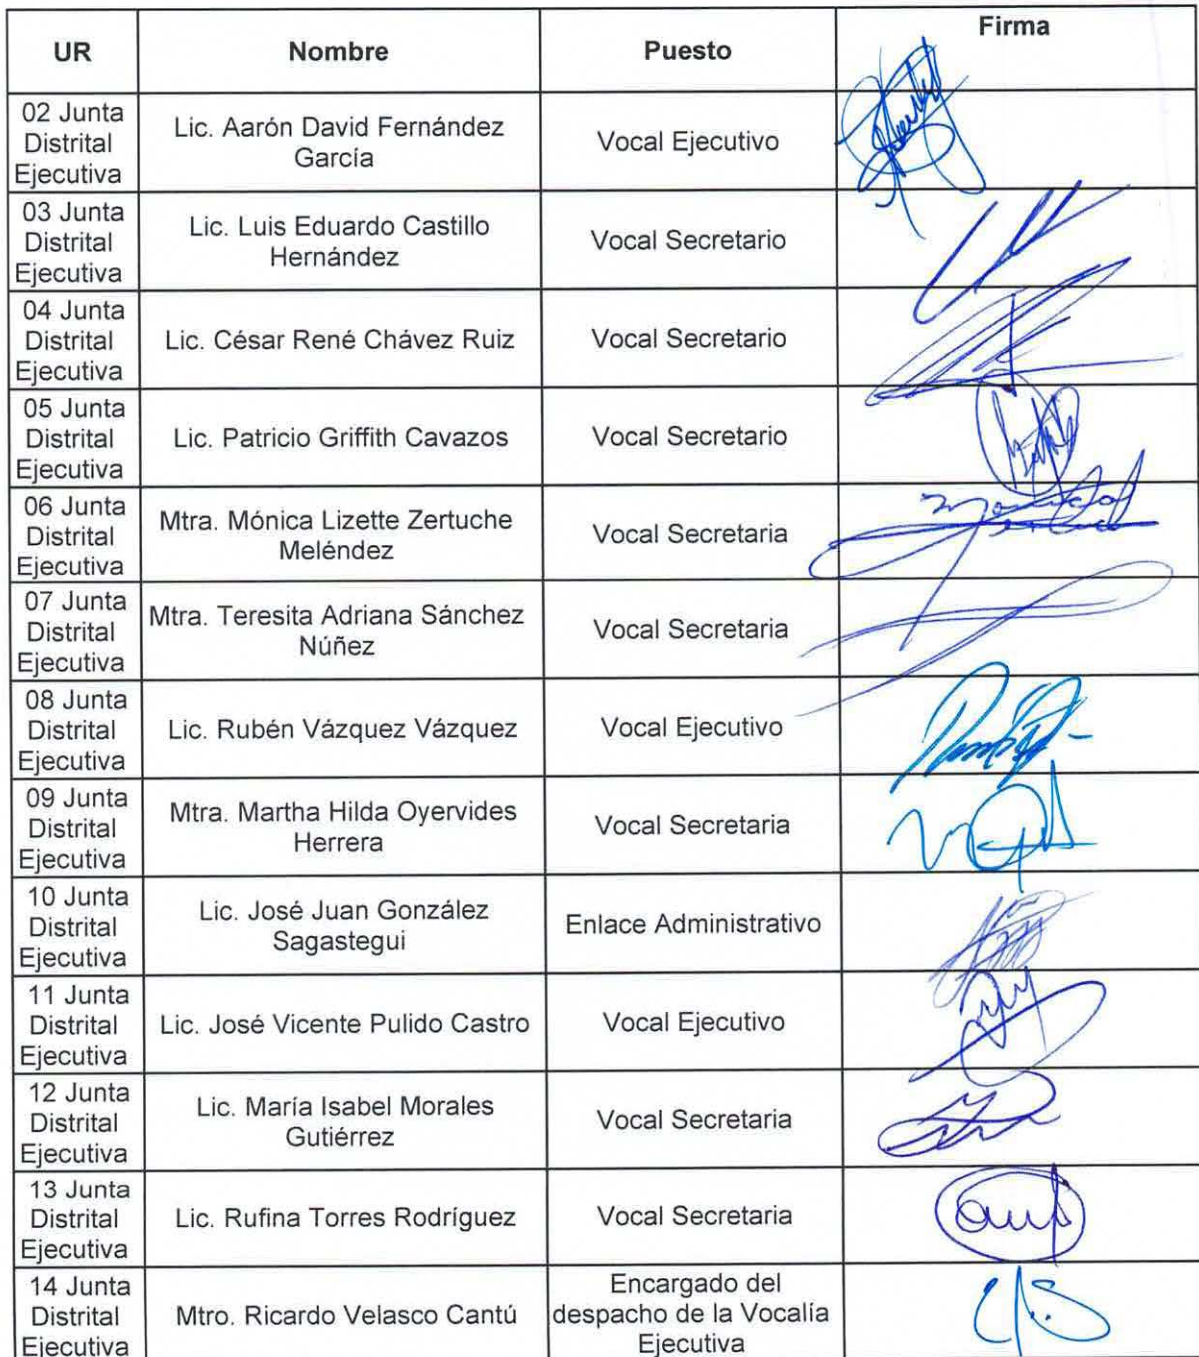 UR Nombre Puesto Firma
02 Junta
Distrital
Ejecutiva
Lic. Aarón David Fernández
García
Vocal Ejecutivo
03 Junta
Distrital
Ejecutiva
Lic. Luis Eduardo Castillo
Hernández
Vocal Secretario
04 Junta
Distrital
Ejecutiva
Lic. César René Chávez Ruiz
Vocal Secretario
05 Junta
Distrital
Ejecutiva
Lic. Patricio Griffith Cavazos
Vocal Secretario
06 Junta
Distrital
Ejecutiva
Mtra. Mónica Lizette Zertuche
Meléndez
Vocal Secretaria
07 Junta
Distrital
Ejecutiva
Mtra. Teresita Adriana Sánchez
Núñez
Vocal Secretaria
08 Junta
Distrital
Ejecutiva
Lic. Rubén Vázquez Vázquez
Vocal Ejecutivo
09 Junta
Distrital
Ejecutiva
Mtra. Martha Hilda Oyervides
Herrera
Vocal Secretaria
10 Junta
Distrital
Ejecutiva
Lic. José Juan González
Sagastegui
Enlace Administrativo
11 Junta
Distrital
Ejecutiva
Lic. José Vicente Pulido Castro
Vocal Ejecutivo
12 Junta
Distrital
Ejecutiva
Lic. María Isabel Morales
Gutiérrez
Vocal Secretaria
13 Junta
Distrital
Ejecutiva
Lic. Rufina Torres Rodríguez
Vocal Secretaria
14 Junta
Distrital
Ejecutiva
Mtro. Ricardo Velasco Cantú
Encargado del
despacho de la Vocalía
Ejecutiva